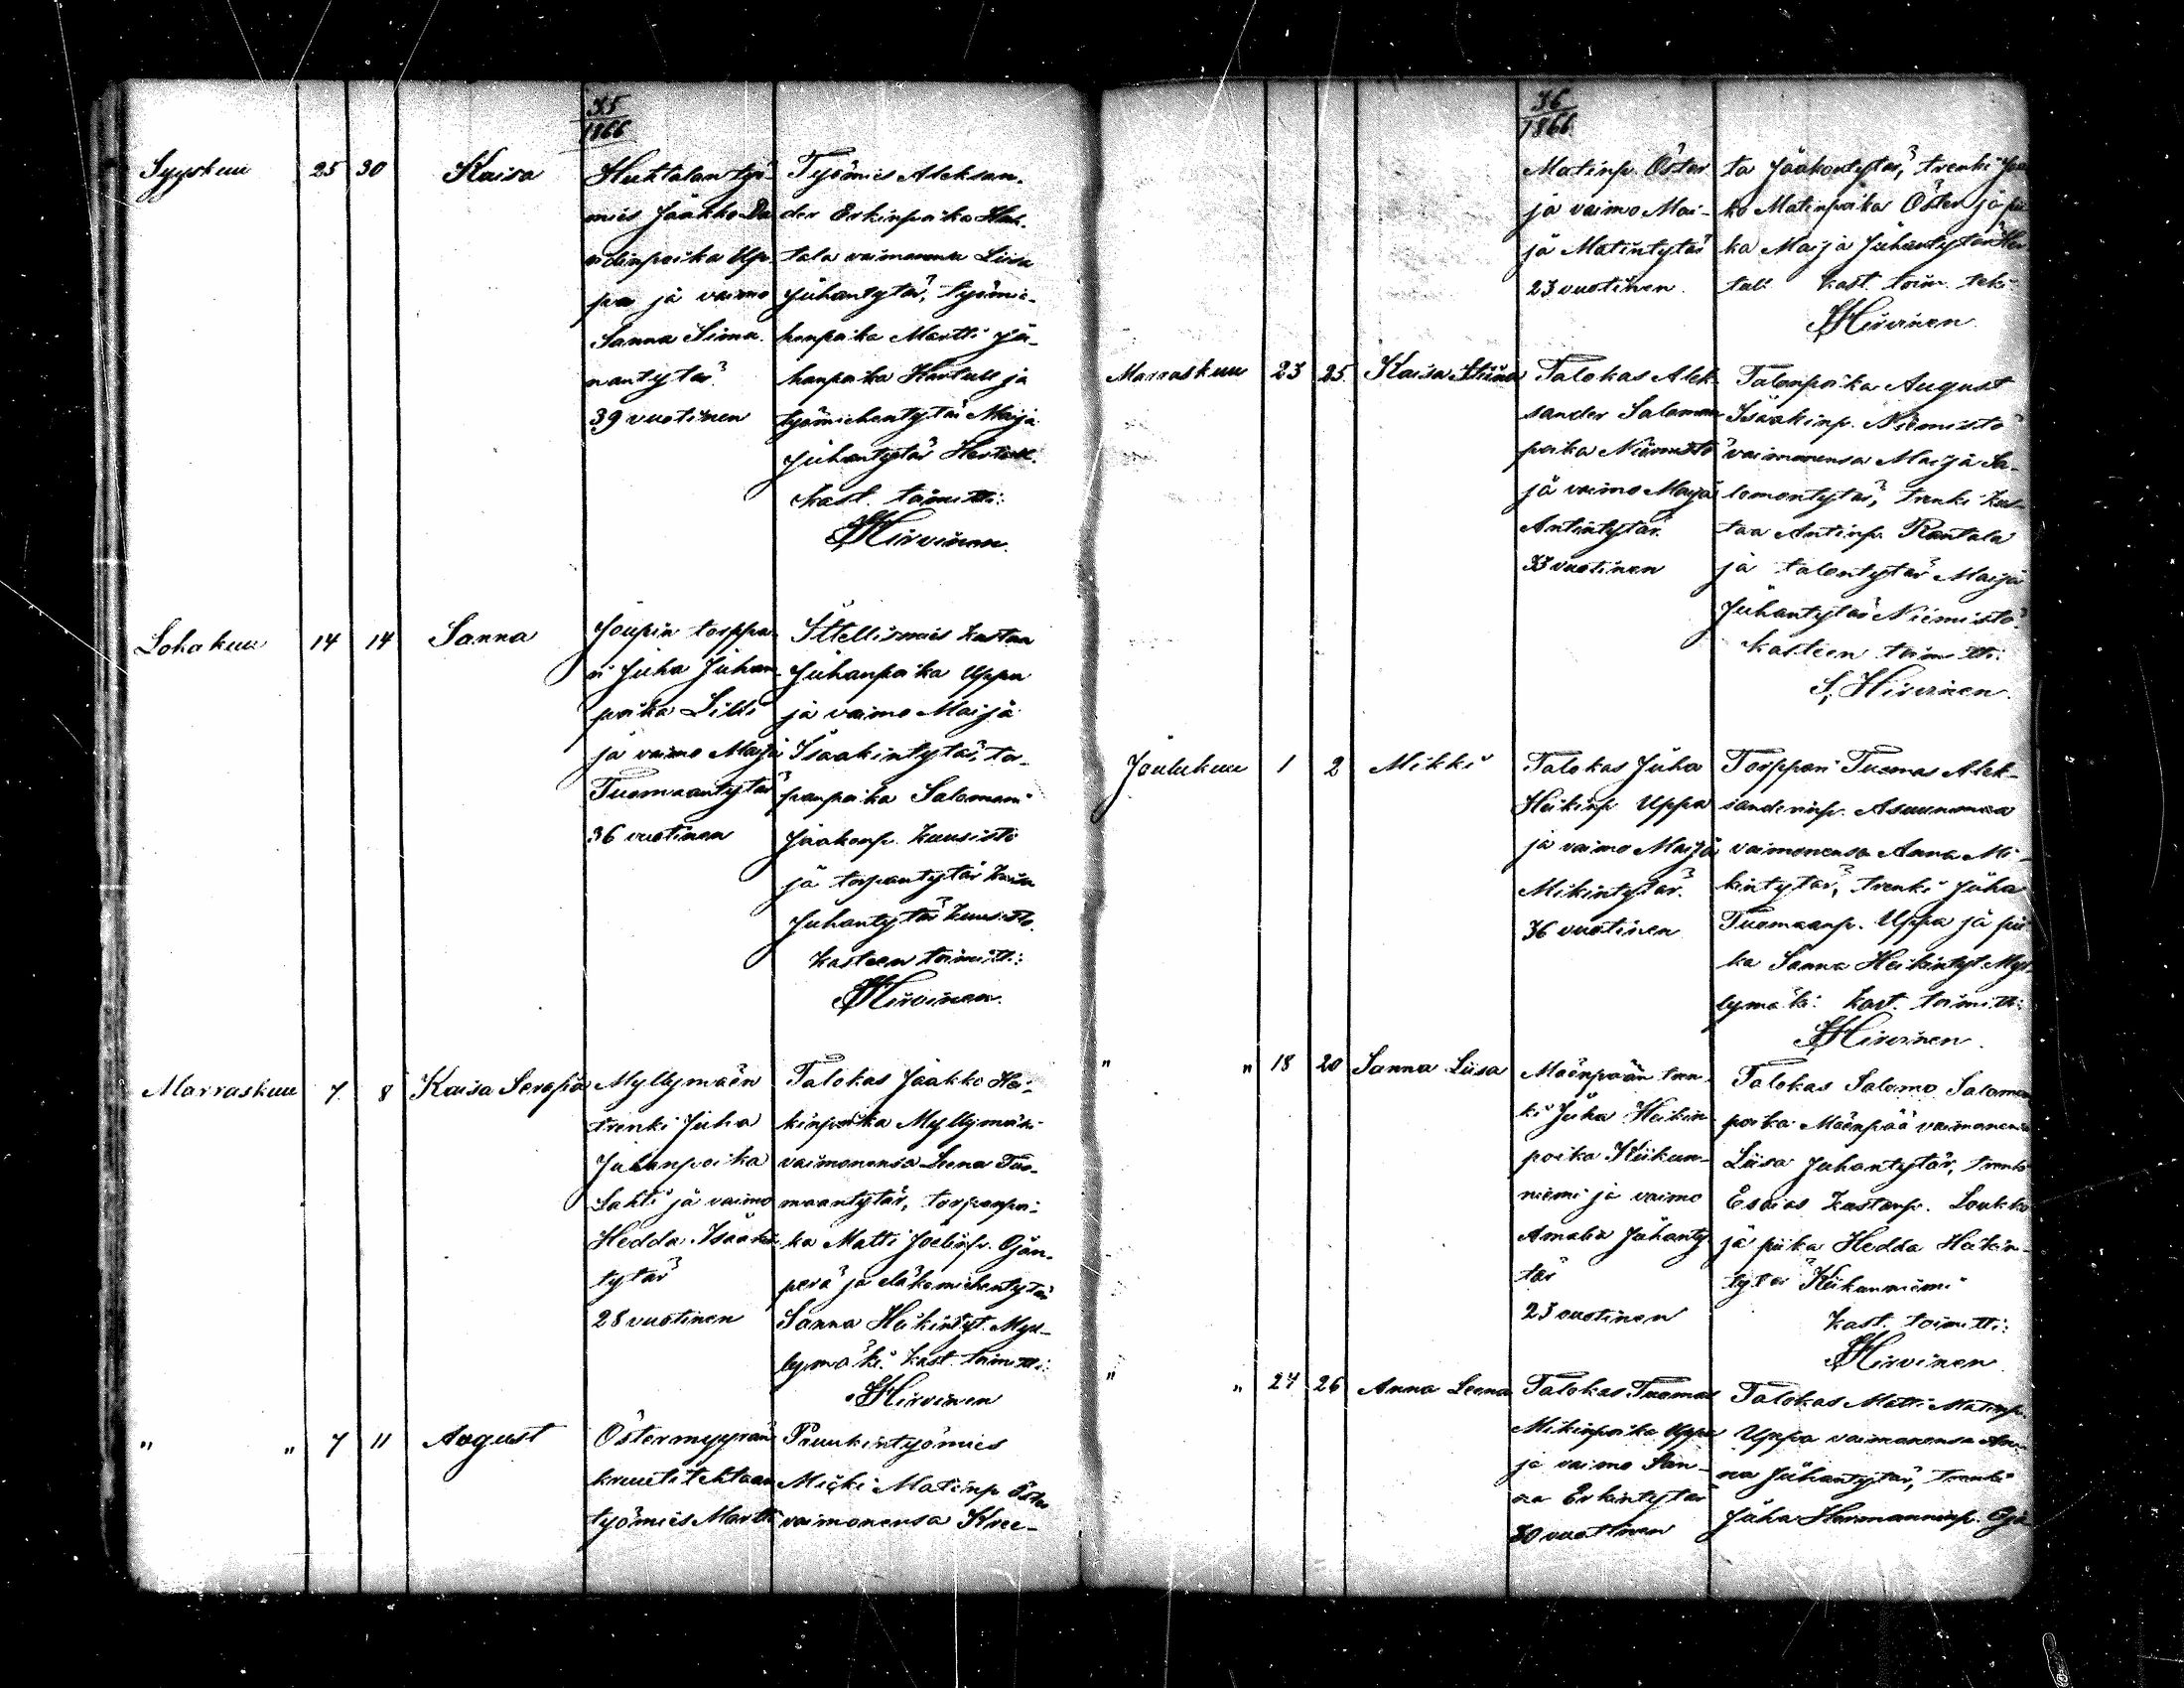 35
1866
Syyskuu 25 30 Kaisa
Huhtalan työ-
mies Jaakko Da-
vidinpoika Up-
pa ja vaimo
Sanna Simu-
nantytär
39 vuotinen
Työmies Aleksan-
der Erkinpoika Huh-
tala vaimonensa Liisa
Juhantytär, työmie-
henpoika Martti Ju-
hanpoika Hertull ja
työmiehentytär Maija
Juhantytär Hertull.
Kast. toimitti:
Hirvinen.
Lokakuu 14 14 Sanna
Joupin torppa-
ri Juha Juhan-
poika Lilli
ja vaimo Maija
Tuomaantytär
36 vuotinen
Ittellismies Kustaa
Juhanpoika Uppa
ja vaimo Maija
Isaakintytär, tor-
panpoika Salomoni
Jaakonp. Kuusisto
ja torpantytär Kaisa
Juhantytär Kuusisto.
Kasteen toimitti:
Hirvinen.
Marraskuu 7 8 Kaisa Serafia
Myllymäen
trenki Juha
Juhanpoika
Lahti ja vaimo
Hedda Isaakin-
tytär
28 vuotinen
Talokas Jaakko Hei-
kinpoika Myllymäki
vaimonensa Leena Tuo-
maantytär, torpanpoi-
ka Matti Joelinp. Ojan-
perä ja eläkemiehentytär
Sanna Heikintyt. Myl-
lymäki. Kast. toimitti:
Hirvinen
" " 7 11 August
Östermyyrän
kruutitehtaan
työmies Martti
Pruukintyömies
Micki Matinp Öster
vaimonensa Kree-
36
1866
Matinp. Öster
ja vaimo Mai-
ja Matintytär
23 vuotinen.
ta Jaakontytär, trenki Jaa-
ko Matinpoika Öster ja pii-
ka Maija Juhantytär Her-
tull kast. toim. teki
Hirvinen.
Marraskuu 23 25 Kaisa Stiina
Talokas Alek-
sander Salomon-
poika Niemistö
ja vaimo Maija
Antintytär.
33 vuotinen
Talonpoika August
Isaakinp. Niemistö
vaimonensa Maija Sa-
lomontytär, trenki Kus-
taa Antinp. Rantala
ja talontytär Maija
Juhantytär Niemistö.
Kasteen toimitti:
Hirvinen.
Joulukuu 1 2 Mikki
Talokas Juha
Heikinp Uppa
ja vaimo Maija
Mikintytär.
36 vuotinen
Torppari Tuomas Alek-
sanderinp. Asunmaa
vaimonensa Anna Mi-
kintytär, trenki Juha
Tuomaanp. Uppa ja pii-
ka Sanna Heikintyt Myl-
lymäki. Kast. toimitti:
Hirvinen.
" " 18 20 Sanna Liisa
Mäenpään tren-
ki Juha Heikin-
poika Kiikun-
niemi ja vaimo
Amalia Juhanty-
tär
23 vuotinen
Talokas Salomo Salomon-
poika Mäenpää vaimonensa
Liisa Juhantytär, trenki
Esaias Kustanp. Loukko
ja piika Hedda Heikin-
tytär Kiikunniemi
Kast. toimitti:
Hirvinen
" " 24 26 Anna Leena
Talokas Tuomas
Mikinpoika Uppa
ja vaimo San-
na Erkintytär
30 vuottinen
Talokas Matti Matinp.
Uppa vaimonensa An-
na Juhantytär, trenki
Juha Hermanninp. Oja-